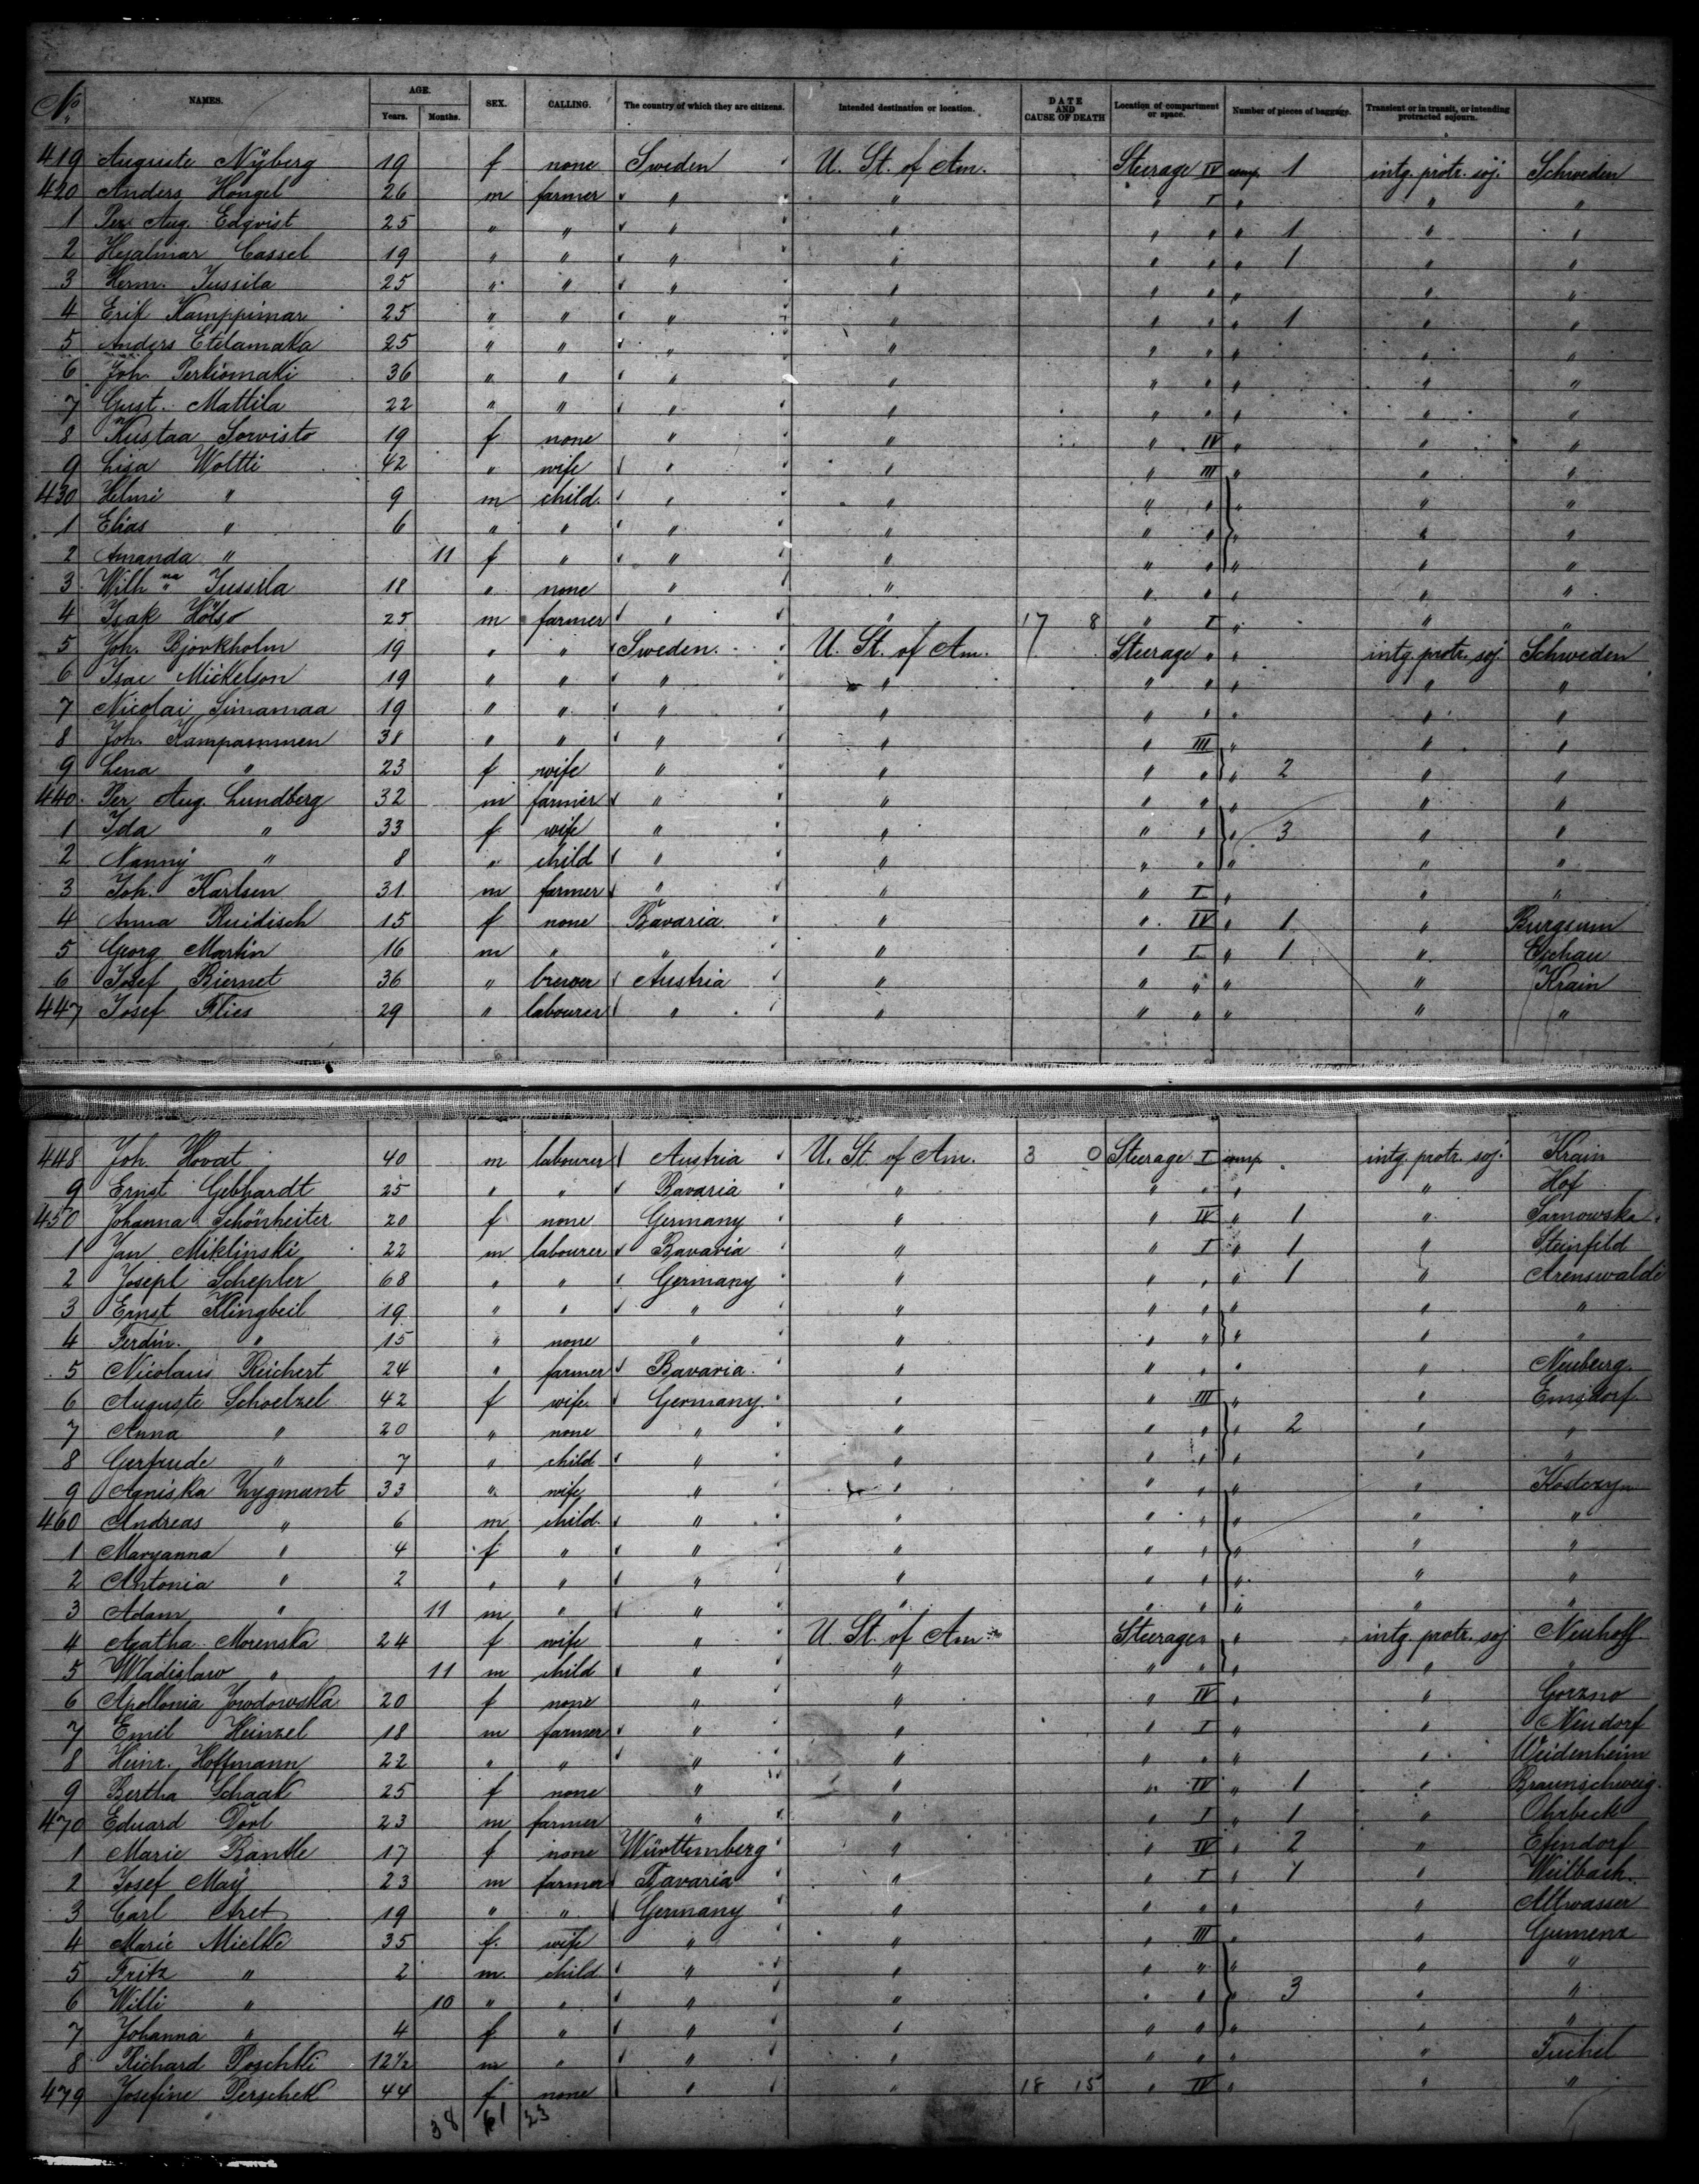 No. NAMES. AGE. Years. Months. SEX. CALLING. The country of which they are citizens. Intended destination or location. DATE AND CAUSE OF DEATH Location of compartment or space. Number of pieces of baggage. Transient or in transit, or intending protracted sojourn.
419 Auguste Nÿberg 19 f none Sweden U. St. of Am. Steerage IV comp. 1 intg. protr. soj. Schweden
420 Anders Hongel 26 m farmer " " " I " " "
1 Per Aug. Edqvist 25 " " " " " " " 1 " "
2 Hjalmar Cassel 19 " " " " " " " 1 " "
3 Herm. Jussila 25 " " " " " " " " "
4 Erik Kamppimar 25 " " " " " " " 1 " "
5 Anders Etelamaka 25 " " " " " " " " "
6 Joh. Perkiomaki 36 " " " " " " " " "
7 Gust. Mattila 22 " " " " " " " " "
8 Kustaa Sorvisto 19 f none " " " IV " " "
9 Lisa Woltti 42 " wife " " " III " " "
430 Helmi " 9 m child " " " " " " "
1 Elias " 6 " " " " " " " " "
2 Amanda " 11 f " " " " " " " "
3 Wilh.na Jussila 18 " none " " " " " " "
4 Isak Hölso 25 m farmer " " 17 8 " I " " "
5 Joh. Bjorkholm 19 " " Sweden U. St. of Am. Steerage " " intg. protr. soj. Schweden
6 Isac Mickelson 19 " " " " " " " " "
7 Nicolai Simamaa 19 " " " " " " " " "
8 Joh. Kampasmmen 38 " " " " " III " " "
9 Lena " 23 f wife " " " " " 2 " "
440 Per Aug. Lundberg 32 m farmer " " " " " " "
1 Ida " 33 f wife " " " " " 3 " "
2 Nanny " 8 " child " " " " " " "
3 Joh. Karlsen 31 m farmer " " " I " " "
4 Anna Ruidisch 15 f none Bavaria " " IV " 1 " Burgsum
5 Georg Martin 16 m " " " " I " 1 " Eschau
6 Josef Biernet 36 " brewer Austria " " " " " Krain
447 Josef Flies 29 " labourer " " " " " " "
448 Joh. Hovat 40 m labourer Austria U. St. of Am. 3 0 Steerage I comp. intg. protr. soj. Krain
9 Ernst Gebhardt 25 " " Bavaria " " " " " Hof
450 Johanna Schönheiter 20 f none Germany " " IV " 1 " Sarnowska
1 Jan Miklinski 22 m labourer Bavaria " " I " 1 " Steinfeld
2 Josepl Schepler 68 " " Germany " " " " 1 " Arenswalde
3 Ernst Klingbeil 19 " " " " " " " " "
4 Ferdin. " 15 " none " " " " " " "
5 Nicolaus Reichert 24 " farmer Bavaria " " " " " Neuberg
6 Auguste Schoelzel 42 f wife Germany " " III " " Emsdorf
7 Anna " 20 " none " " " " " 2 " "
8 Gertrude " 7 " child " " " " " " "
9 Agniska Zygmant 33 " wife " " " " " " Kostezyn
460 Andreas " 6 m child " " " " " " "
1 Maryanna " 4 f " " " " " " " "
2 Antonia " 2 " " " " " " " " "
3 Adam " 11 m " " " " " " " "
4 Agatha Morenska 24 f wife " U. St. of Am. Steerage " " intg. protr. soj Neuhoff
5 Wladislaw " 11 m child " " " " " " "
6 Apollonia Jowdowska 20 f none " " " IV " " Gorzno
7 Emil Heinzel 18 m farmer " " " I " " Neudorf
8 Heinr. Hoffmann 22 " " " " " " " " Weidenheim
9 Bertha Schaak 25 f none " " " IV " 1 " Braunschweig
470 Eduard Dörl 23 m farmer " " " I " 1 " Ohrbeck
1 Marie Bantle 17 f none Württemberg " " IV " 2 " Efendorf
2 Josef Maÿ 23 m farmer Bavaria " " I " 1 " Weilbach
3 Carl Aret 19 " " Germany " " " " " Altwasser
4 Marie Mielke 35 f wife " " " III " " Gumenz
5 Fritz " 2 m child " " " " " " "
6 Willi " 10 " " " " " " " 3 " "
7 Johanna " 4 f " " " " " " " "
8 Richard Poschki 12½ m " " " " " " " Tuchel
479 Josefine Perschek 44 f none " " 18 15 " IV " " "
38 61 23